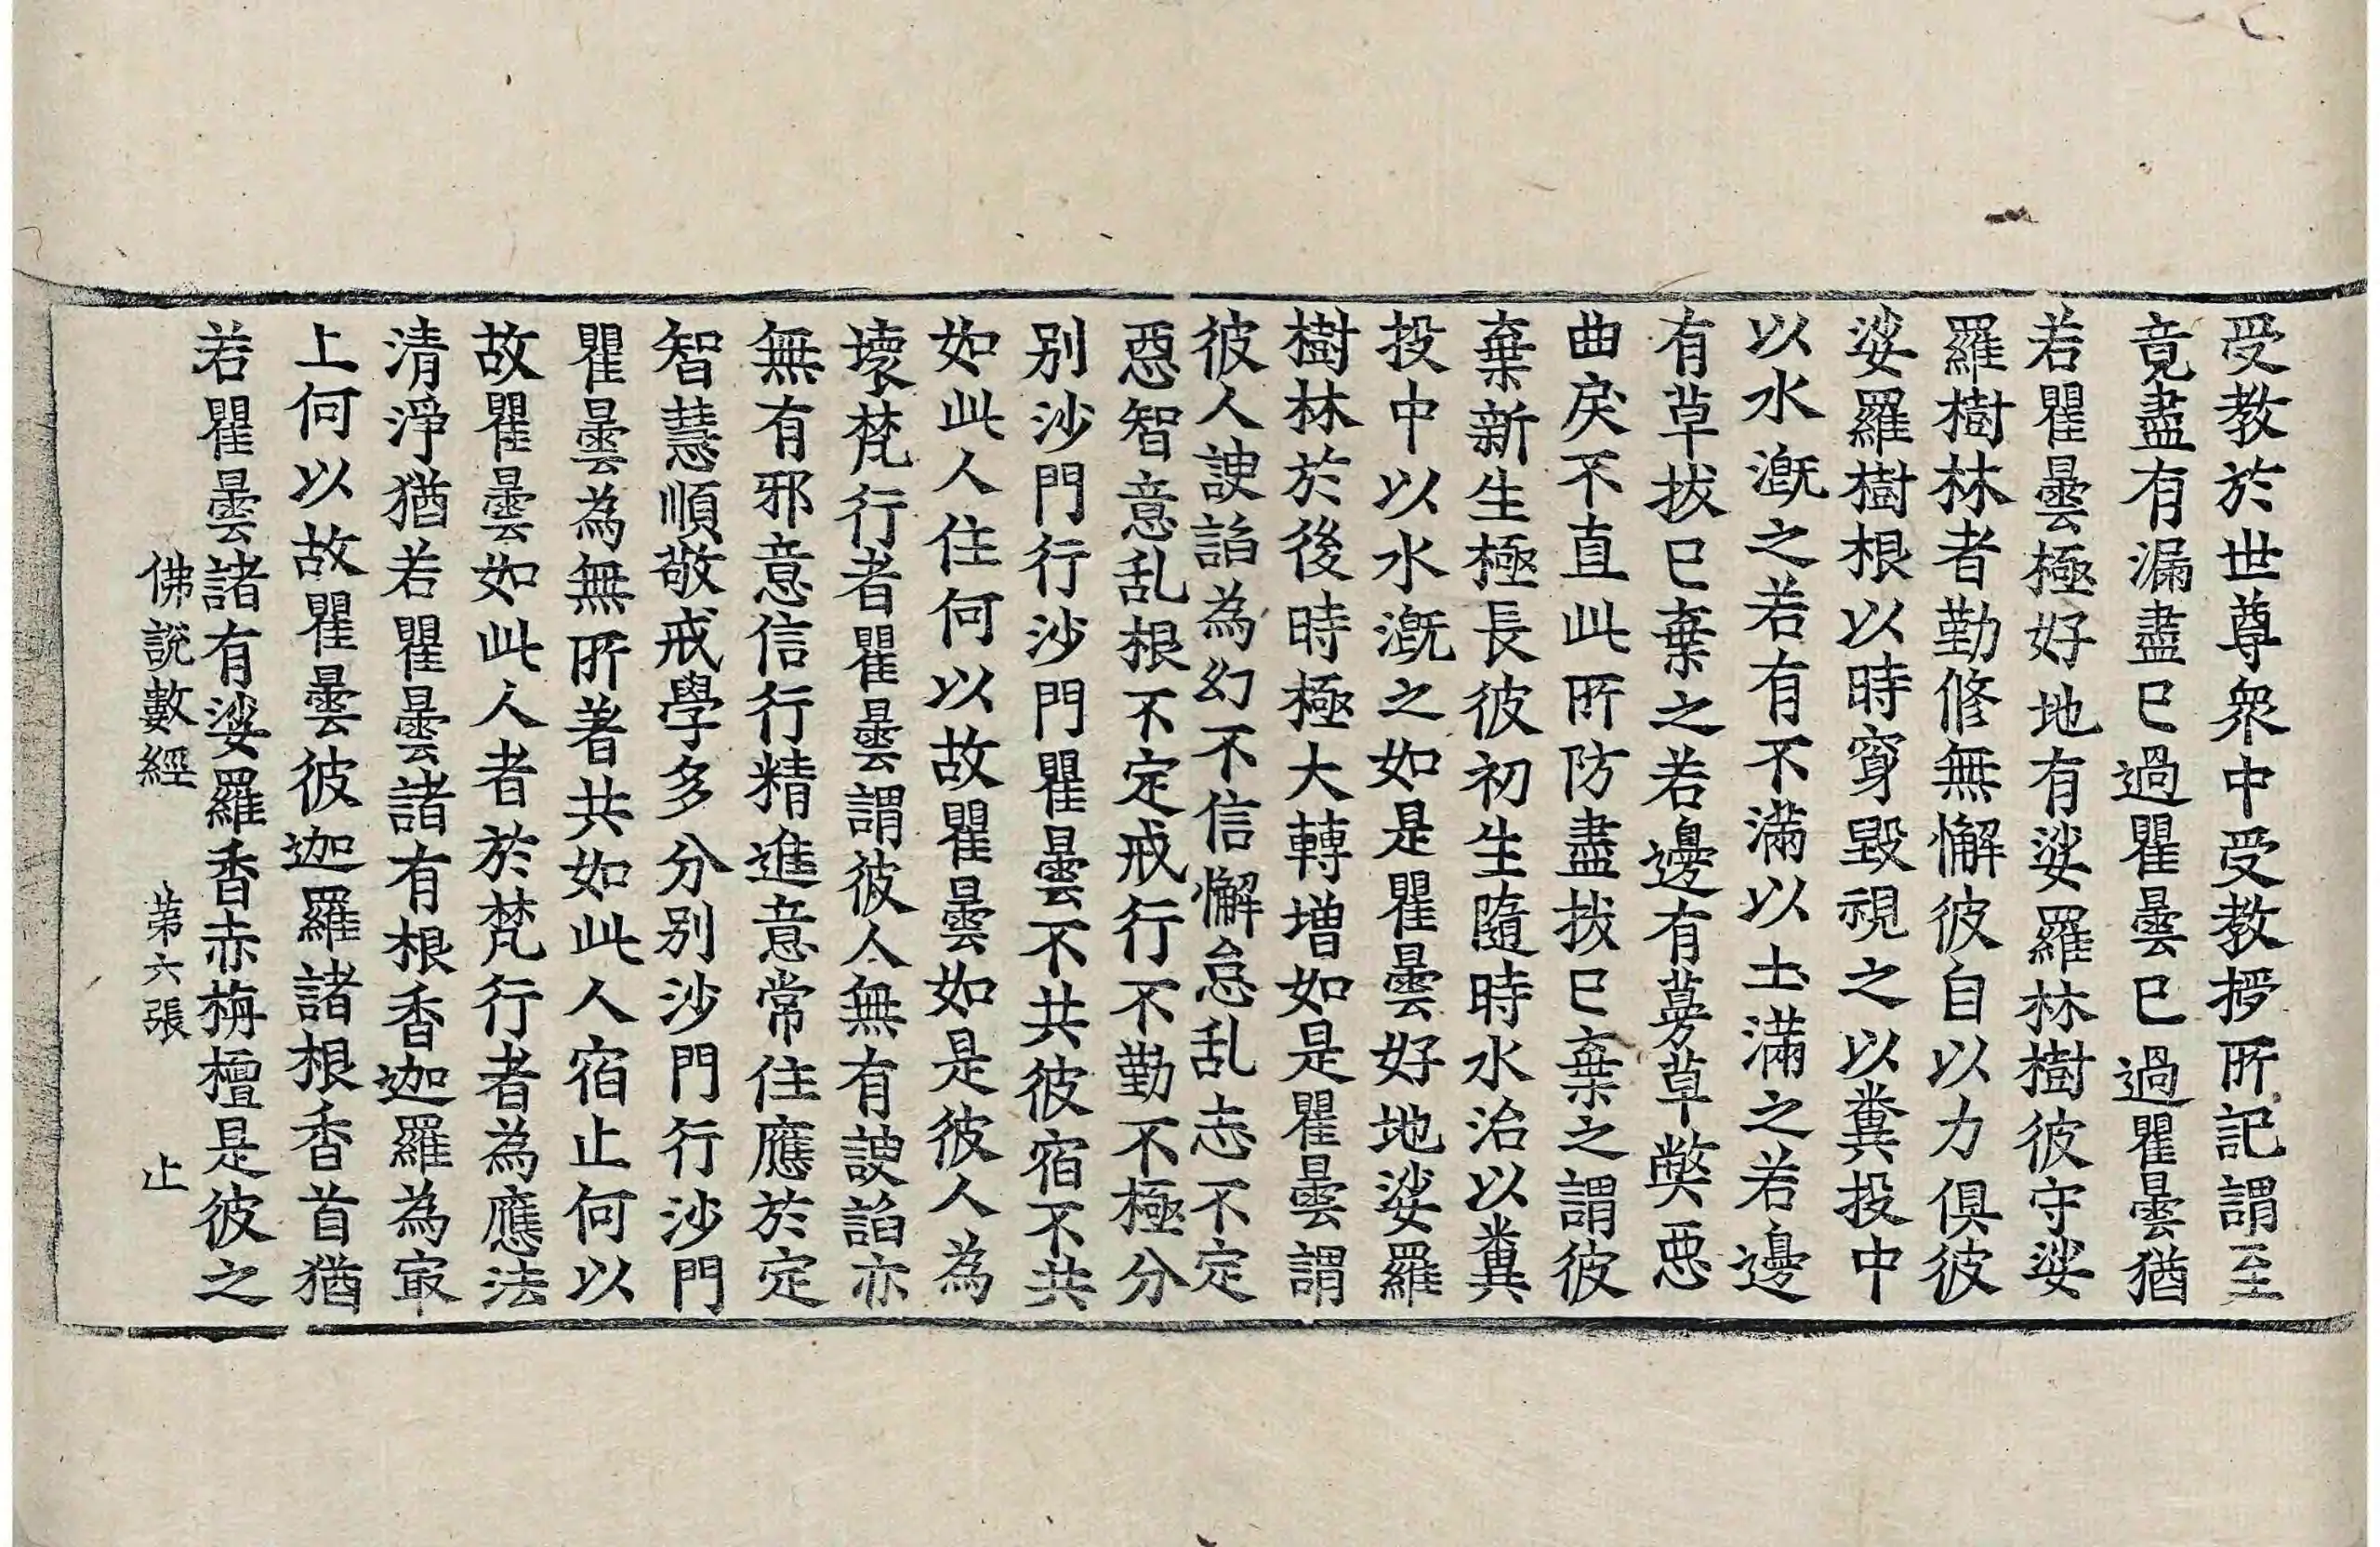 受教於世尊衆中受教授所記謂至
竟盡有漏盡已過瞿曇已過瞿曇猶
若瞿曇極好地有娑羅林樹彼守娑
羅樹林者勤修無懈彼自以力俱彼
娑羅樹根以時穿毀視之以糞投中
以水漑之若有不滿以土滿之若邊
有草拔已棄之若邊有蔓草弊惡
曲戾不直此所防盡拔已棄之謂彼
棄新生極長彼初生隨時水治以糞
投中以水漑之如是瞿曇好地娑羅
樹林於後時極大轉增如是瞿曇謂
彼人諛諂為幻不信懈怠乱志不定
惡智意乱根不定戒行不勤不極分
別沙門行沙門瞿曇不共彼宿不共
如此人住何以故瞿曇如是彼人為
壞梵行者瞿曇謂彼人無有諛諂亦
無有邪意信行精進意常住應於定
智慧順敬戒學多分別沙門行沙門
瞿曇為無所著共如此人宿止何以
故瞿曇如此人者於梵行者為應法
清淨猶若瞿曇諸有根香迦羅為㝡
上何以故瞿曇彼迦羅諸根香首猶
若瞿曇諸有娑羅香赤栴檀是彼之
佛説數經　第六張　止